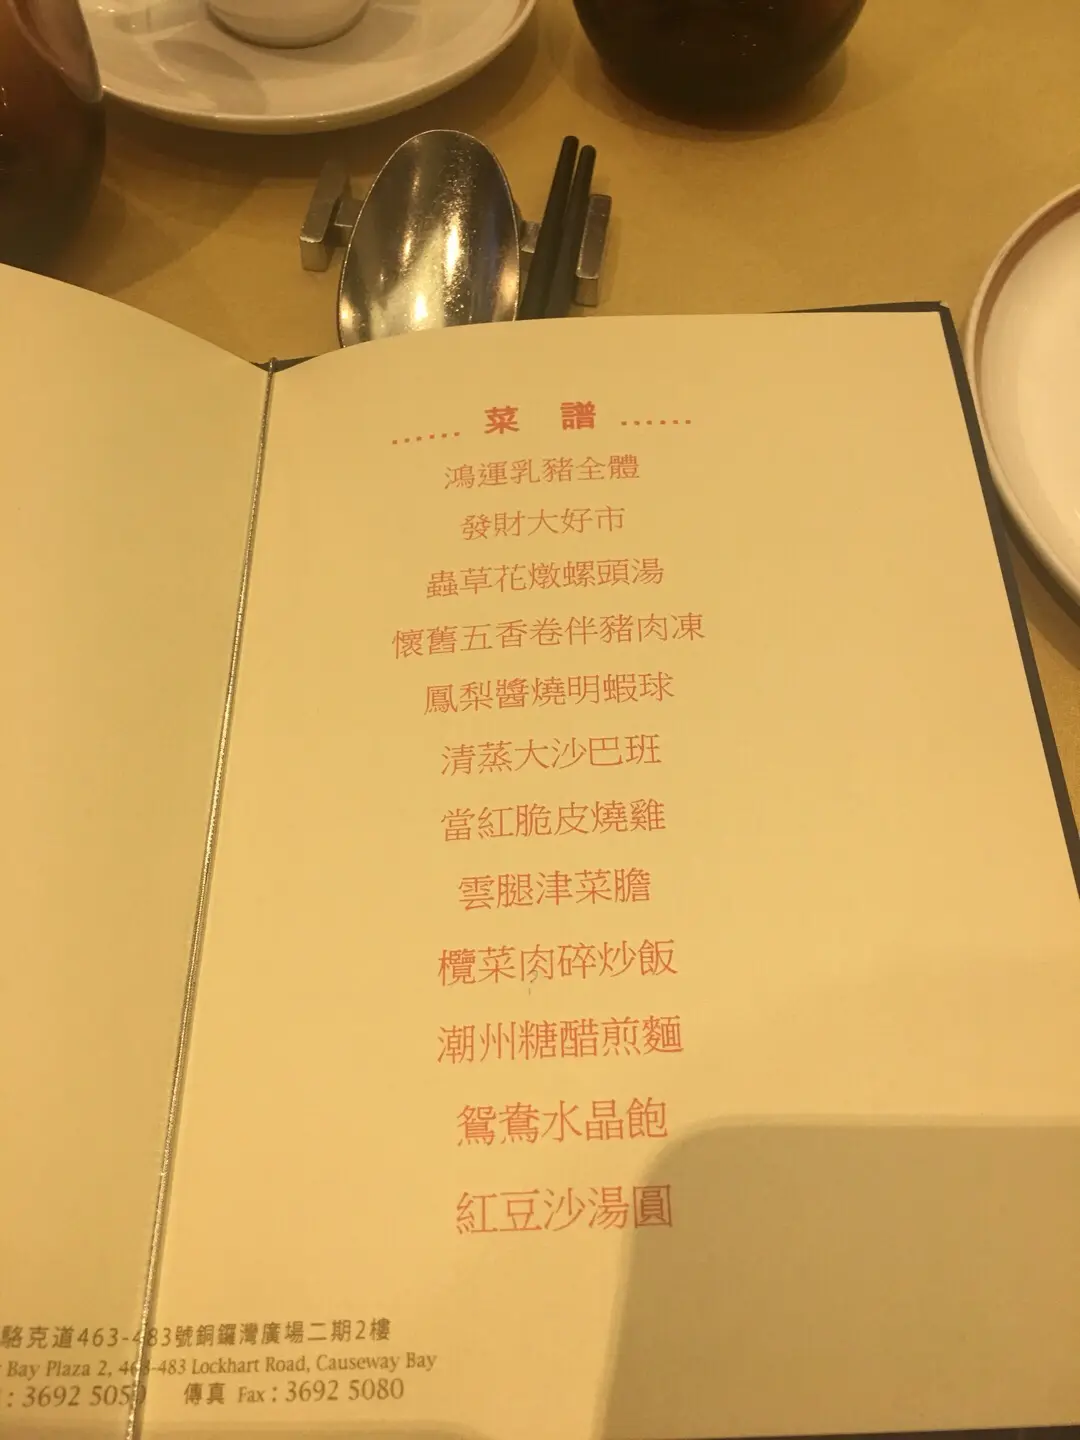 菜譜
鴻運乳豬全體
發財大好市
蟲草花燉螺頭湯
懷舊五香卷伴豬肉凍
鳳梨醬燒明蝦球
清蒸大沙巴班
當紅脆皮燒雞
雲腿津菜膽
欖菜肉碎炒飯
潮州糖醋煎麵
鴛鴦水晶飽
紅豆沙湯圓
駱克道463-483號銅鑼灣廣場二期2樓
Bay Plaza 2, 463-483 Lockhart Road, Causeway Bay
: 3692 5050 傳真 Fax : 3692 5080